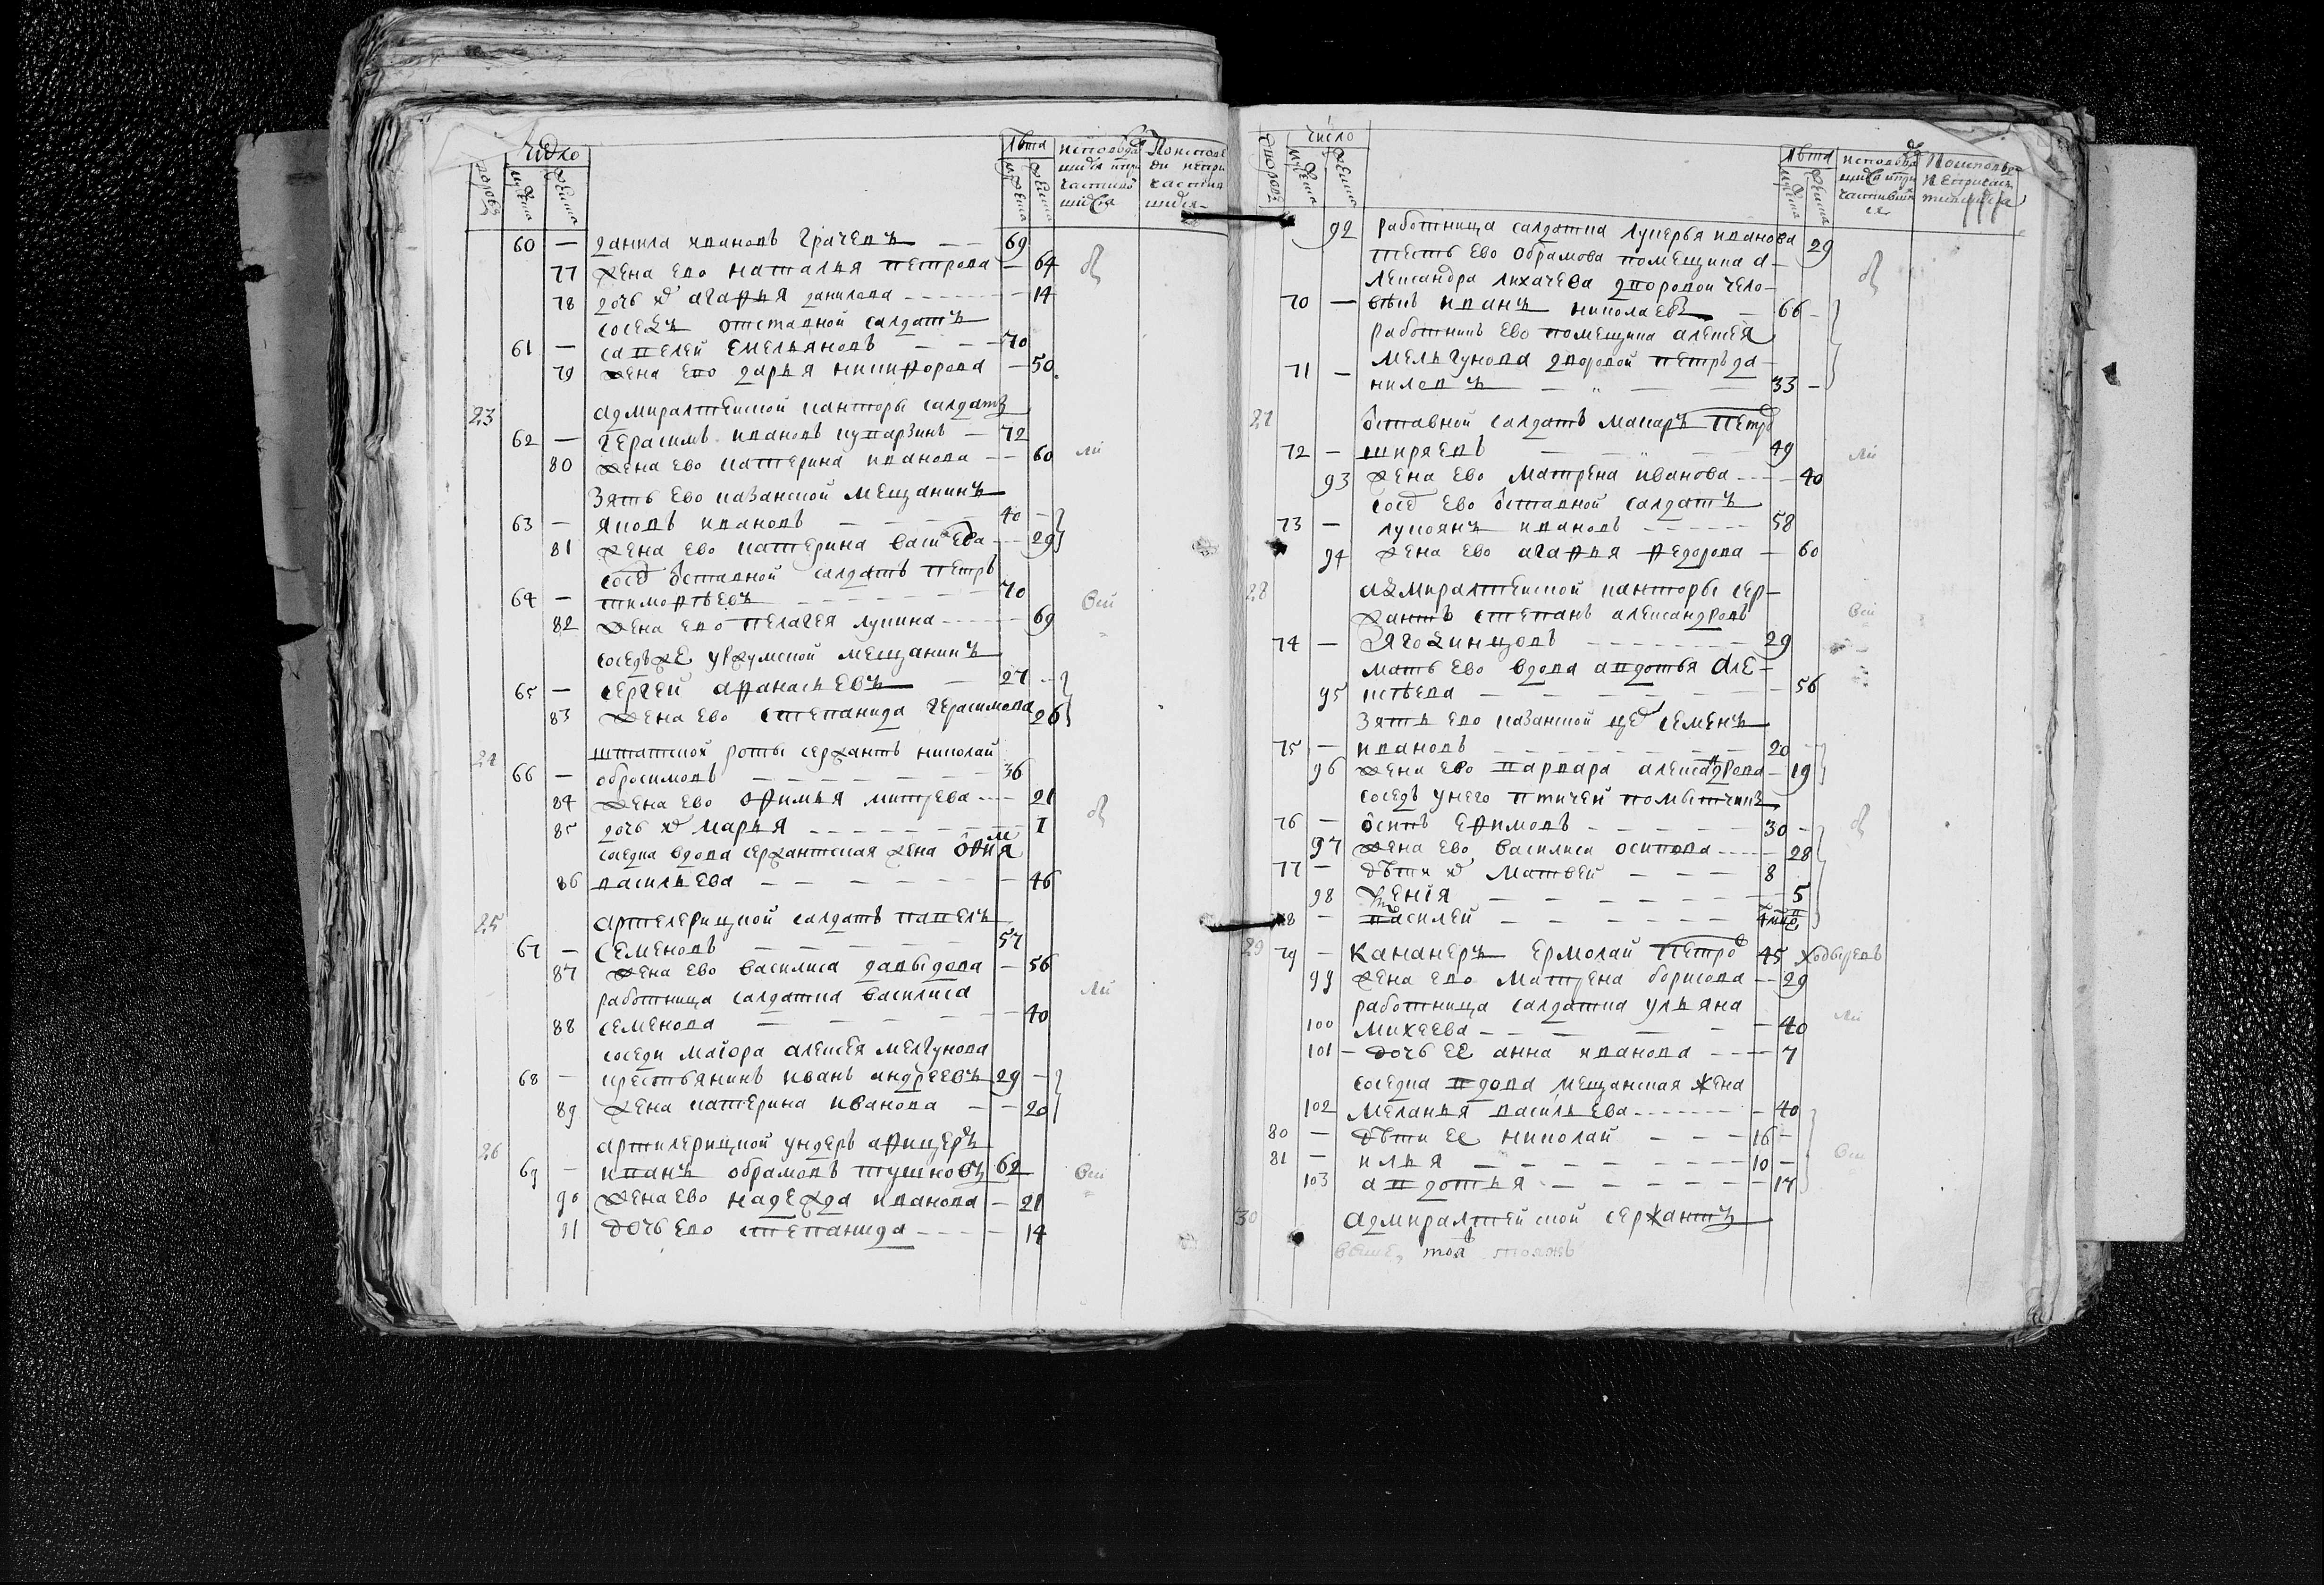 Число
Лѣта
дворовъ
мужеска
женска
60 — данила ивановъ грачевъ — — 69
77 жена ево наталья петрова — 64
78 дочь их агафья данилова — 14
соседъ отставной салдатъ
61 — савелей емельяновъ — — 70
79 жена ево дарья никифорова — 50
23 адмиралтейской канторы салдатъ
62 — герасимъ ивановъ — 72
80 жена ево катерина иванова — — 60
зять ево казанской мещанинъ
63 — яковъ ивановъ — — — 40 —
81 жена ево катерина — 29
сосед отставной салдатъ петръ
64 — тимофѣевъ — — — 70
82 жена ево пелагея лукина — 69
соседъ же уржумской мещанинъ
65 — сергей афанасьевъ — 27 —
83 жена ево степанида герасимова 26
24 штатской роты сержантъ николай
66 — обросимовъ — — — 36
84 жена ево офимья митрева — 21
85 дочь их марья — — — 1
соседка вдова сержантская жена офимя
86 васильева — — — 46
25 артелерицкой салдатъ павелъ
67 — семеновъ — — — 57
87 жена ево василиса давыдова — 56
работница салдатка василиса
88 семенова — — — 40
соседи маіора алексея мелгунова
68 — крестьянинъ иванъ андреевъ 29 —
89 жена катерина иванова — — 20
26 артилерицкой ундеръ афицеръ
69 — иванъ обрамовъ тушновъ 62
90 жена ево надежда иванова — 21
91 дочь ево степанида — — 14
число
Лѣта
92 работница салдатка лукерья иванова 29
тесть ево обрамова помещика а-
лександра лихачева дворовой чело-
70 — вѣкъ иванъ николаевъ — 66 —
работникъ ево помещика алексея
мельгунова дворовой петръ да-
71 — ниловъ — — — 33 —
27 отставной салдатъ макаръ петро
72 — ширяевъ — — — 49
93 жена ево матрена иванова — 40
сосед ево отставной салдатъ
73 — лукоянъ ивановъ — 58
94 жена ево агафья федорова — 60
28 адмиралтейской канторы сер-
жантъ степанъ александровъ
74 — ягодинцовъ — — — 29
мать ево вдова авдотья але-
95 ксѣева — — — 56
зять ево казанской цех семенъ
75 — ивановъ — — — 20 —
96 жена ево варвара александрова — 19
соседъ у него птичей помытчикъ
76 — осипъ ефимовъ — — — 30 —
97 жена ево василиса осипова — 28
77 — дѣти их матвей — — — 8
98 — — — 5
78 — василей — — —
29 79 — кананеръ ермолай петро 45 ходыревъ
99 жена ево матрена борисова — 29
работница салдатка ульяна
100 михеева — — — 40
101 — дочь ее анна иванова — — 7
соседка вдова мещанская жена
102 меланья васильева — — 40
80 — дѣти ее николай — — — 16 —
81 — илья — — — 10 —
103 авдотья — — — 17
30 адмиралтейской сержантъ